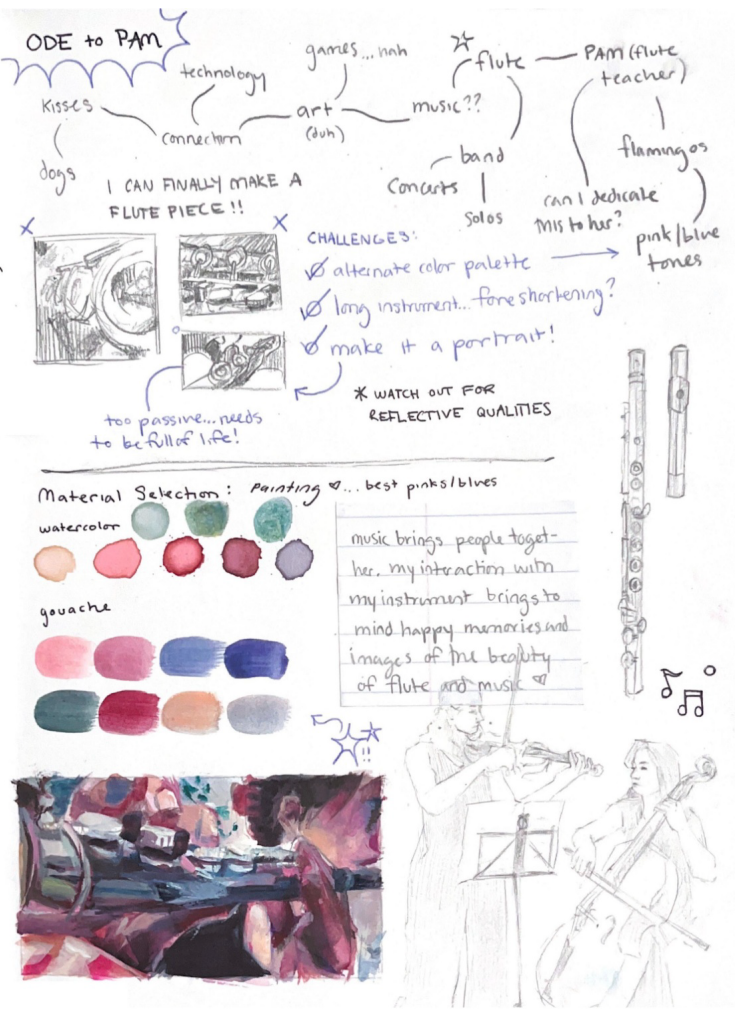 ODE to PAM
games...nah
technology
flute
PAM (flute
teacher)
kisses
art
(duh)
music??
connection
band
flamingos
dogs
concerts
solos
can I dedicate
this to her?
pink/blue
tones
I CAN FINALLY MAKE A
FLUTE PIECE!!
CHALLENGES:
alternate color palette
long instrument... foreshortening?
make it a portrait!
* WATCH OUT FOR
REFLECTIVE QUALITIES
too passive...needs
to be full of life!
Material Selection: Painting ♡... best pinks/blues
watercolor
gouache
music brings people toget-
her. my intraction with
my instrument brings to
mind happy memories and
images of the beauty
of flute and music ♡
!!